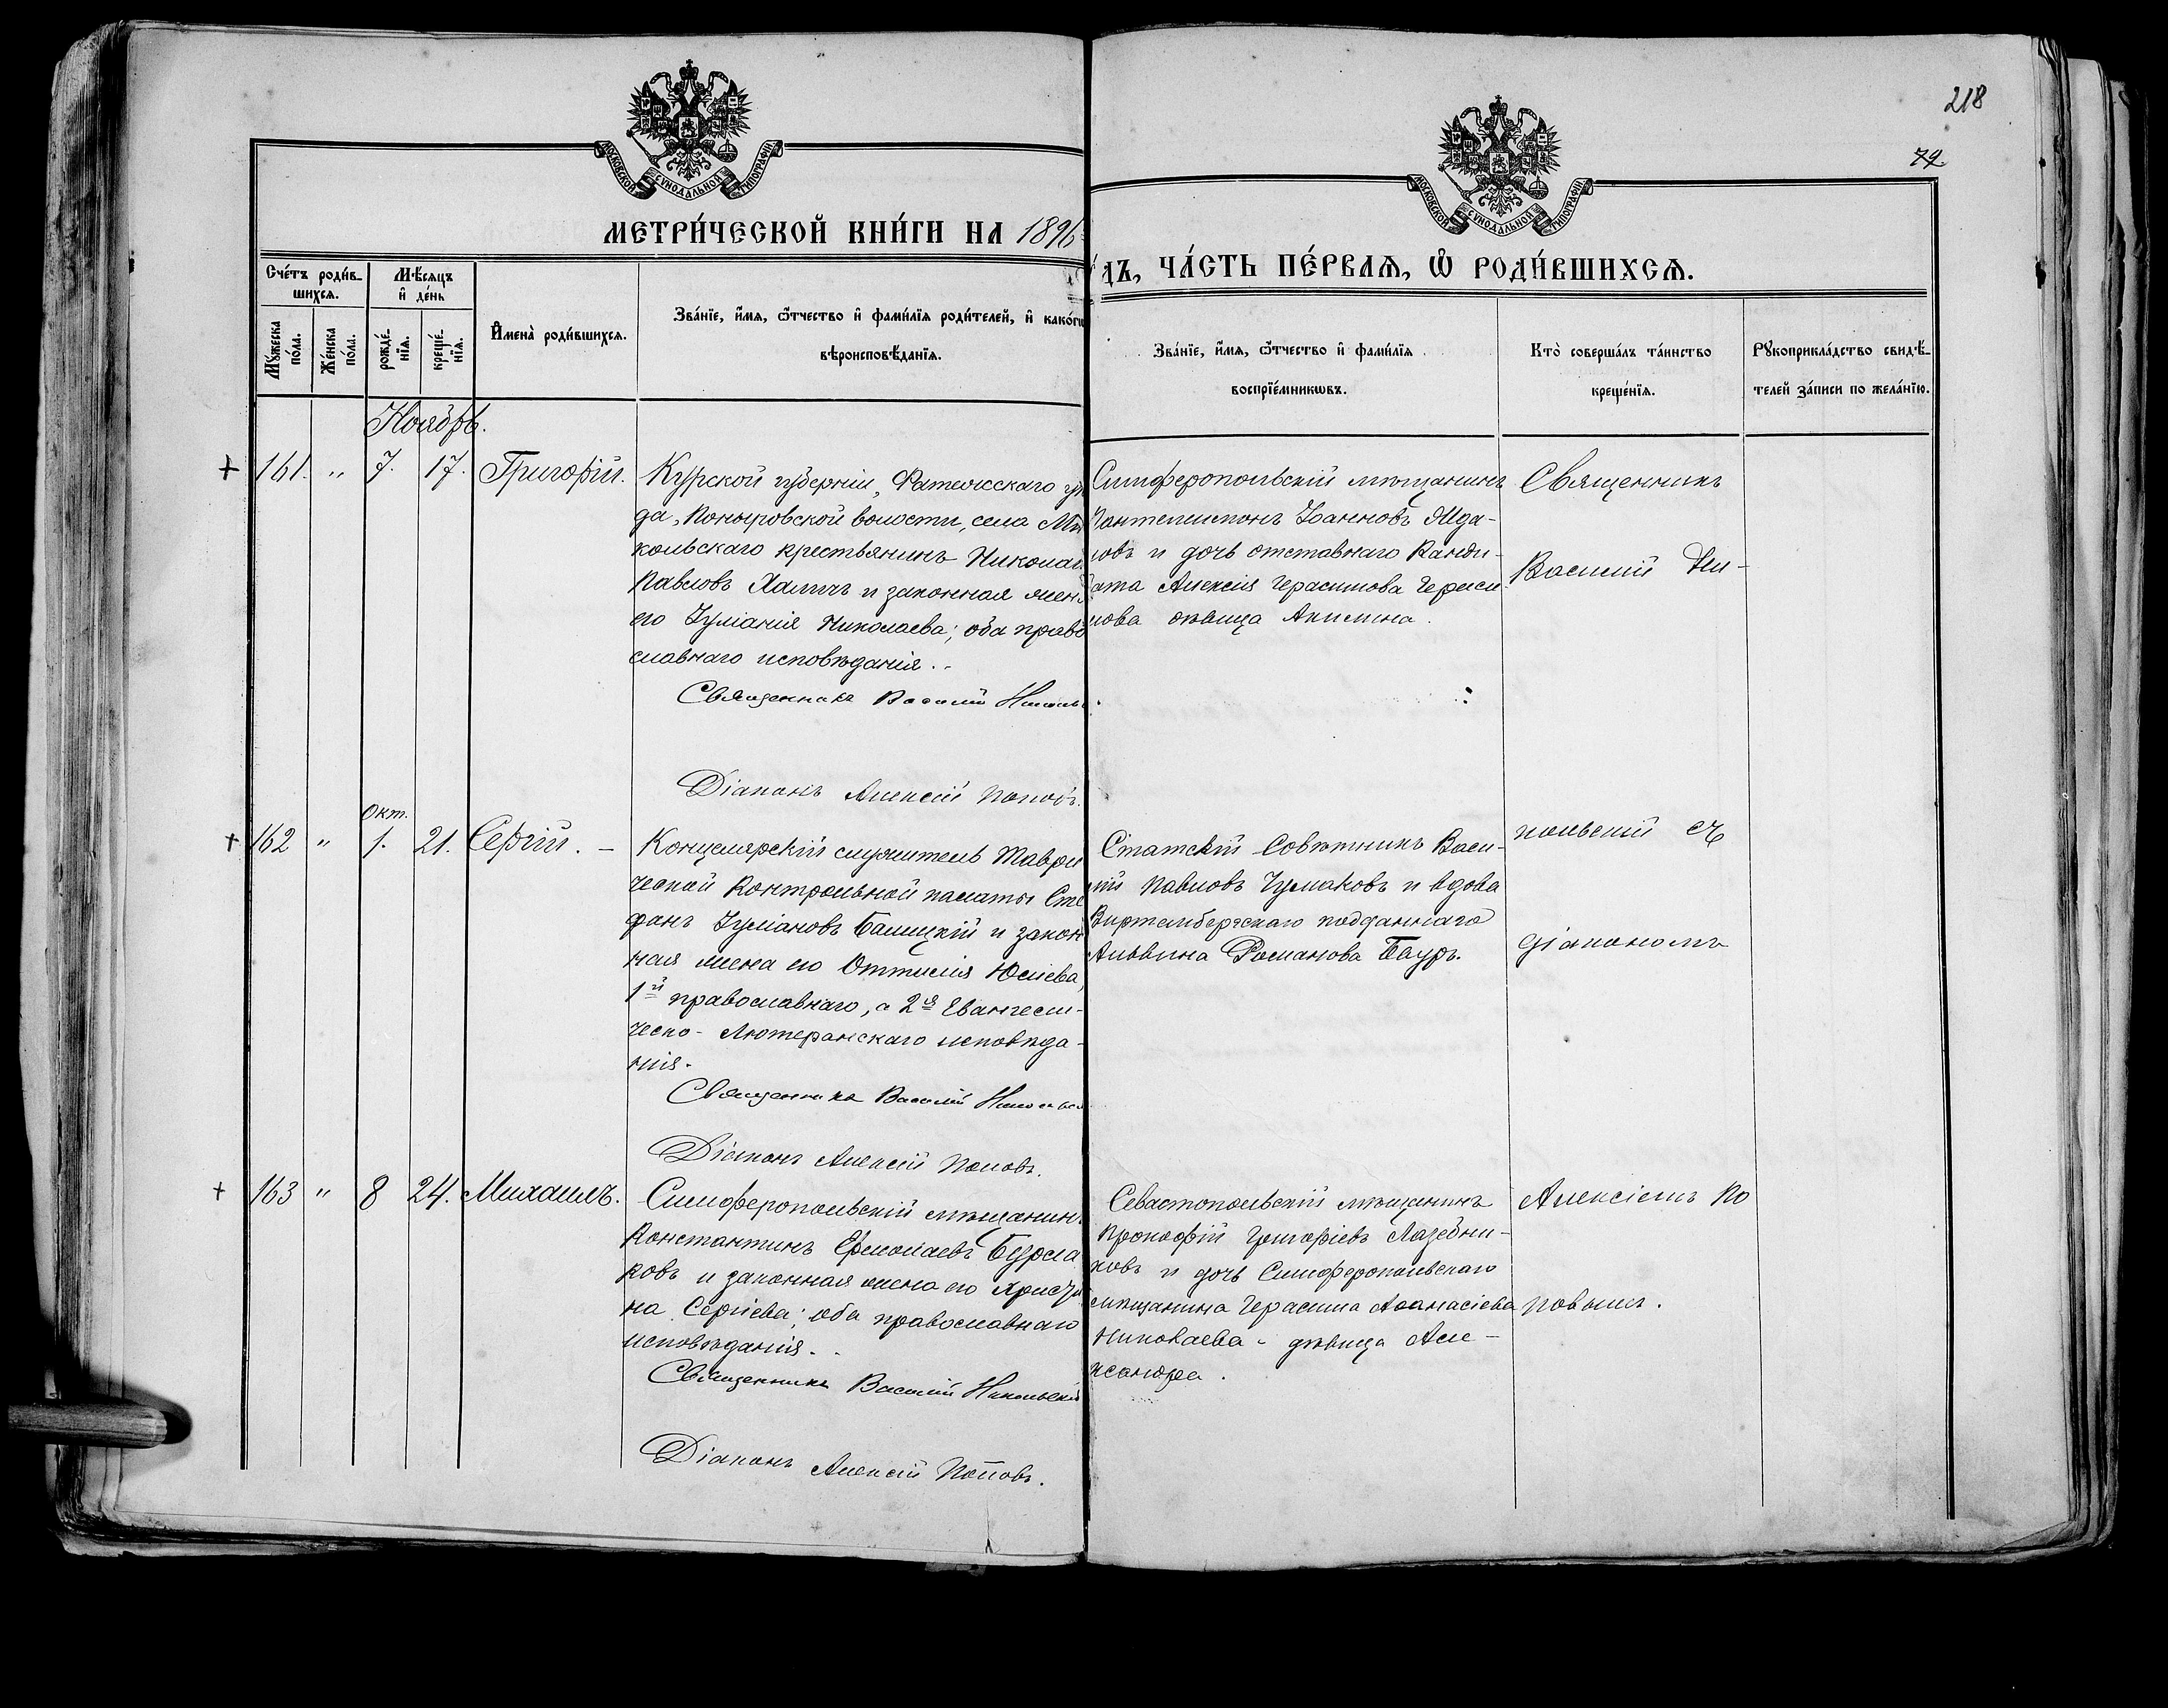 218
79
МОСКОВСКОЙ СУНОДАЛЬНОЙ ТИПОГРАФІИ
МОСКОВСКОЙ СУНОДАЛЬНОЙ ТИПОГРАФІИ
МЕТРИ́ЧЕСКОЙ КНИ́ГИ НА 1896
ДЪ, ЧА́СТЬ ПЕ́РВАѦ, Ѡ РОДИ́ВШИХСѦ.
Сче́тъ роди́в-
шихсѧ.
Мѣ́сѧцъ
и҆ де́нь
Мꙋ́жеска
по́ла.
Же́нска
по́ла.
рожде́-
нїѧ.
креще́-
нїѧ.
И҆мена̀ роди́вшихсѧ.
Зва́нїе, и҆́мѧ, ѻ҆́тчество и҆ фами́лїѧ роди́телей, и҆ како́гѡ
вѣроисповѣ́данїѧ.
Зва́нїе, и҆́мѧ, ѻ҆́тчество и҆ фами́лїѧ
воспрїе́мникѡвъ.
Кто̀ соверша́лъ та́инство
креще́нїѧ.
Рꙋкоприкла́дство свидѣ́-
телей за́писи по жела́нїю.
Ноябрь.
161. " 7. 17. Григорій.
Курской губерніи, Фатежскаго уѣ
да, Поныровской волости, села
кольскаго крестьянинъ Николай
Павловъ Халичъ и законная жена
его Іуліанія Николаева; оба право
славнаго исповѣданія.
Священникъ Василій Николь
Діаконъ Алексій Поповъ.
Симферопольскій мѣщанинъ
Пантелимонъ Іоанновъ Жда-
новъ и дочь отставнаго Канди-
дата Алексія Герасимова Гераси
мова дѣвица Акилина.
Священникъ
Василій Ни-
Окт.
162 " 1. 21. Сергій. –
Канцелярскій служитель Таври
ческой Контрольной палаты Сте
фанъ Іуліановъ Балицкій и закон
ная жена его Оттилія Юлієва,
1й православнаго, а 2я Евангели-
ческо-Лютеранскаго исповѣда-
нія.
Священникъ Василій Никольс
Діаконъ Алексій Поповъ.
Статскій Совѣтникъ Васи-
лій Павловъ Чумаковъ и вдова
Виртембергскаго подданнаго
Альвина Романова Бауръ.
кольскій съ
діакономъ
163 " 8 24. Михаилъ.
Симферопольскій мѣщанинъ
Константинъ Ермолаевъ Бурла
ковъ и законная жена его Христи
на Сергіева; оба православнаго
исповѣданія.
Священникъ Василій Никольскій
Діаконъ Алексій Поповъ.
Севастопольскій мѣщанинъ
Прокофій Григоріевъ Лазебни-
ковъ и дочь Симферопольскаго
мѣщанина Герасима Аѳанасіева
Николаева - дѣвица Але-
ксандра.
Алексіемъ По
повымъ.